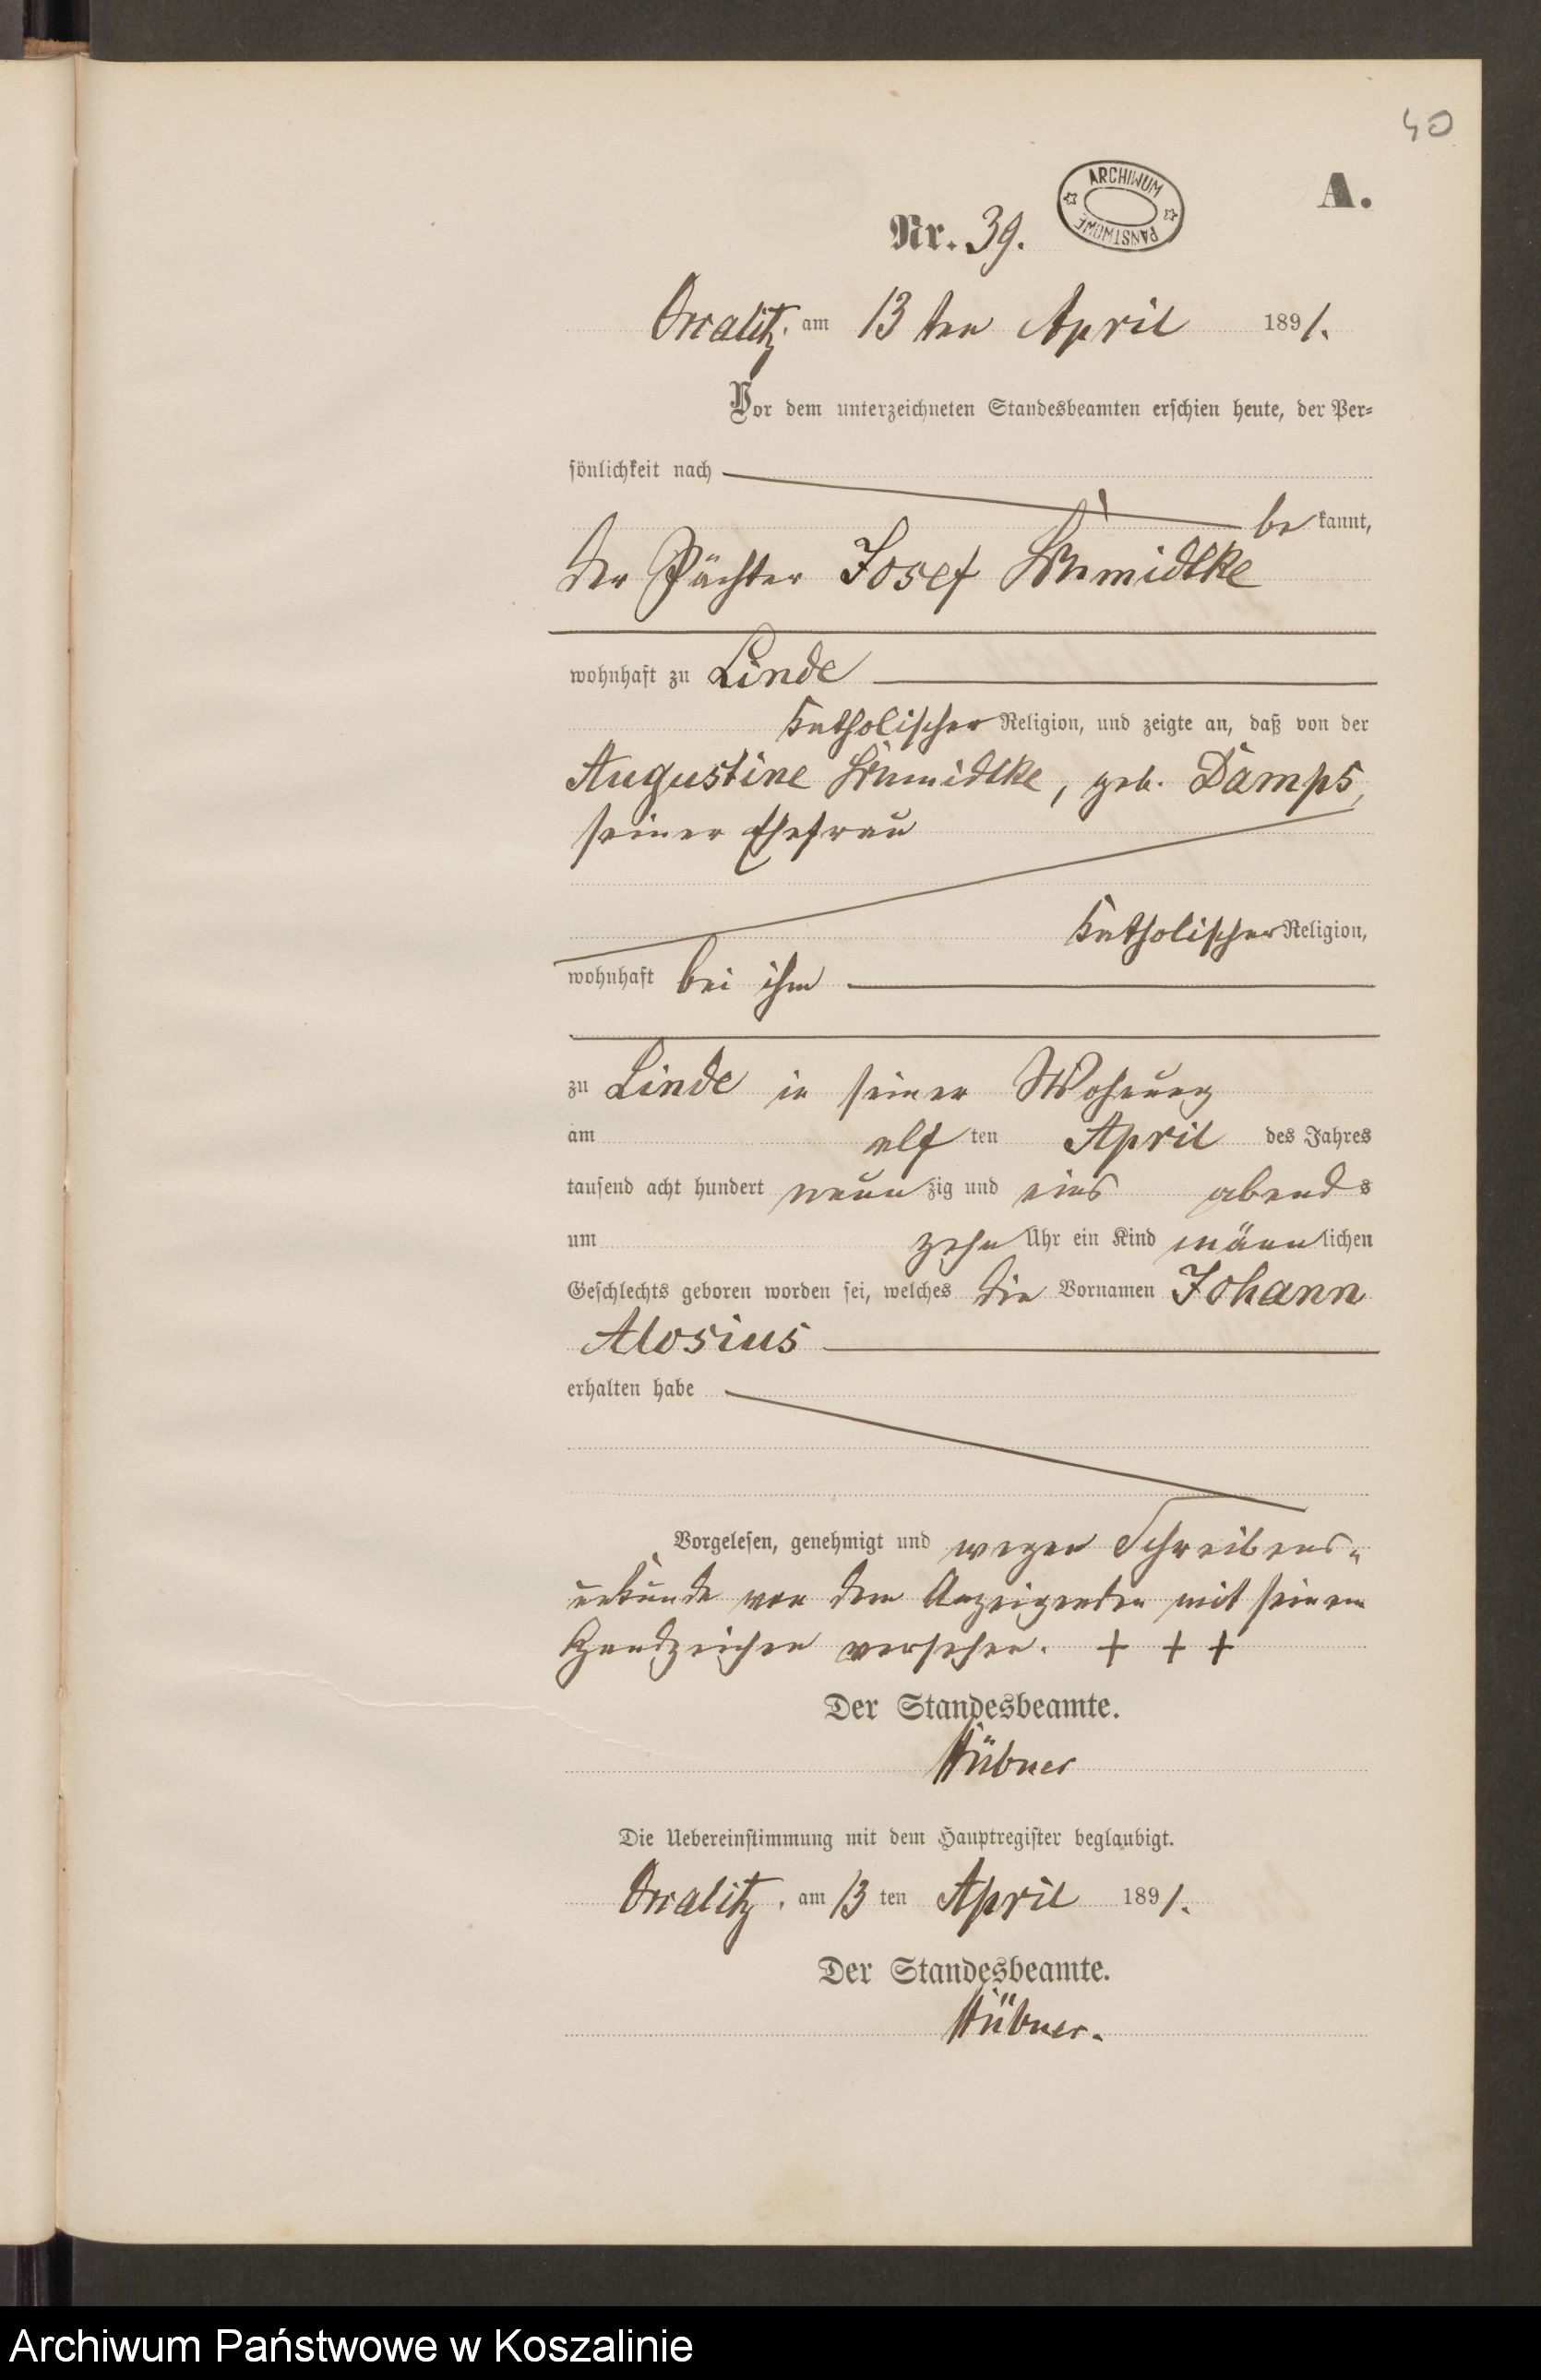 40
A.
ARCHIWUM PAŃSTWOWE
Nr. 39.
am 13 ten April 1891.
Vor dem unterzeichneten Standesbeamten erschien heute, der Per-
sönlichkeit nach
be kannt,
der Pächter Josef Schmidtke
wohnhaft zu Linde
katholischer Religion, und zeigte an, daß von der
Augustine Schmidtke, geb. Damps,
seiner Ehefrau
katholischer Religion,
wohnhaft bei ihm
zu Linde in seiner Wohnung
am elf ten April des Jahres
tausend acht hundert neun zig und eins abend s
um zehn Uhr ein Kind männ lichen
Geschlechts geboren worden sei, welches die Vornamen Johann
Alosius
erhalten habe
Vorgelesen, genehmigt und wegen Schreibens-
unkunde von dem Anzeigenden mit seinem
Handzeichen versehen. + + +
Der Standesbeamte.
Hübner
Die Uebereinstimmung mit dem Hauptregister beglaubigt.
am 13 ten April 1891.
Der Standesbeamte.
Hübner.
Archiwum Państwowe w Koszalinie